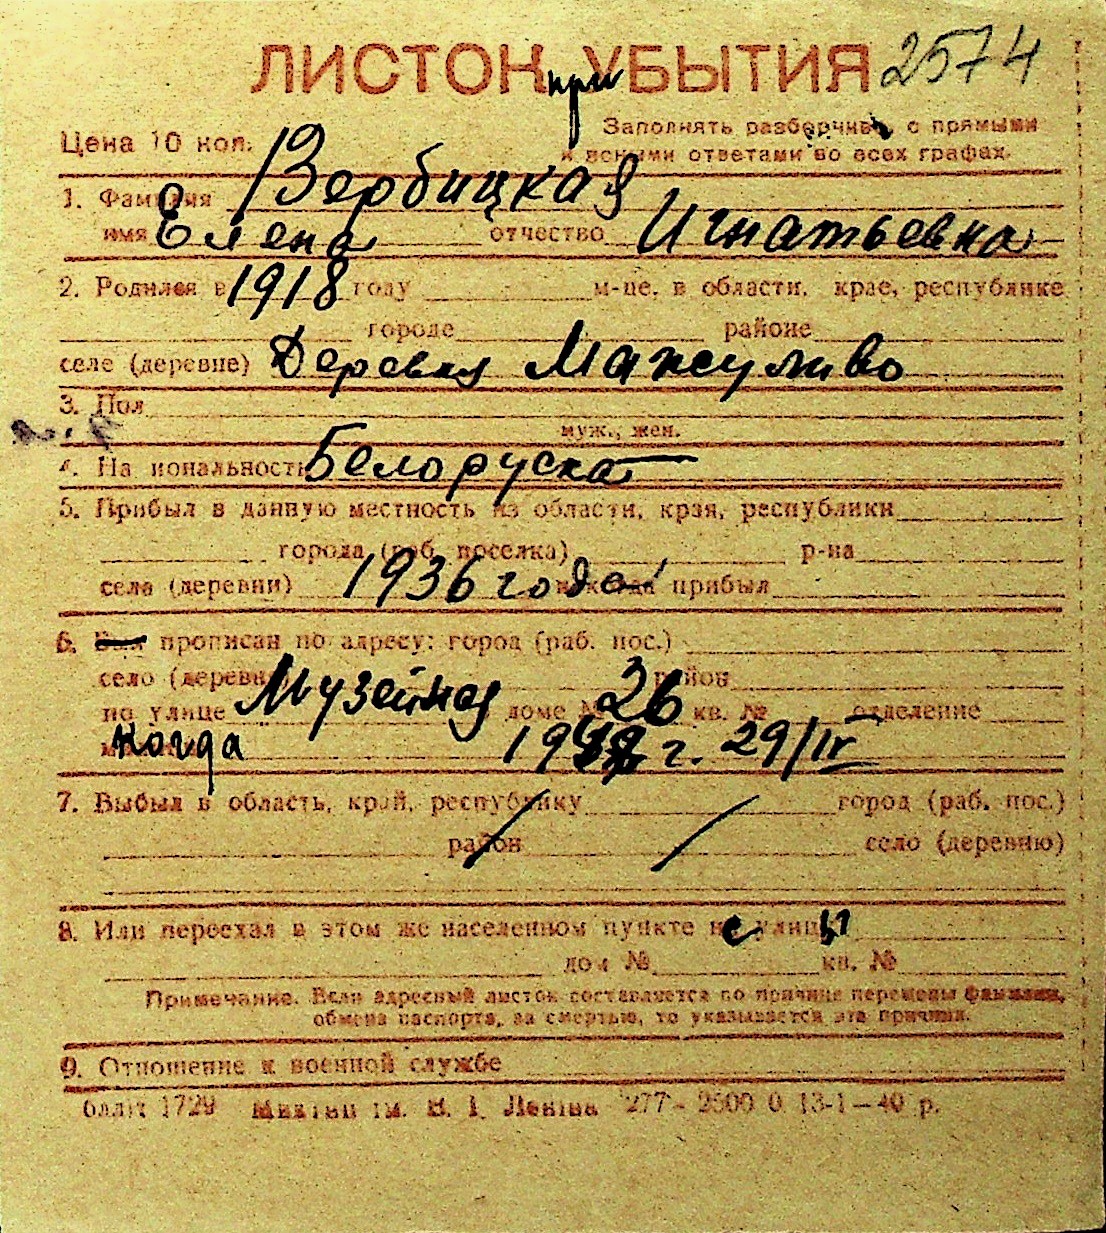 ЛИСТОК при УБЫТИЯ 2574
Цена 10 коп.
Заполнять разборчиво, с прямыми
и ясными ответами во всех графах.
1. Фамилия Вербицкая
имя Елена отчество Игнатьевна
2. Родился в 1918 году м-це, в области, крае, республике
городе районе
селе (деревне) Деревня Мажуливо
3. Пол
муж., жен.
4. Национальность Белоруска
5. Прибыл в данную местность из области, края, республики
города (раб. поселка) р-на
села (деревни) 1936 года прибыл
6. Был прописан по адресу: город (раб. пос.)
село (деревня) район
по улице Музейная доме № 26 кв. № отделение
когда 29/IV
7. Выбыл в область, край, республику город (раб. пос.)
район село (деревню)
8. Или переехал в этом же населенном пункте с улицы
дом № кв. №
Примечание. Если адресный листок составляется по причине перемены фамилии,
обмена паспорта, за смертью, то указывается эта причина.
9. Отношение к военной службе
1729 им. В. І. Леніна 277 - 2500 0 13-1-40 р.